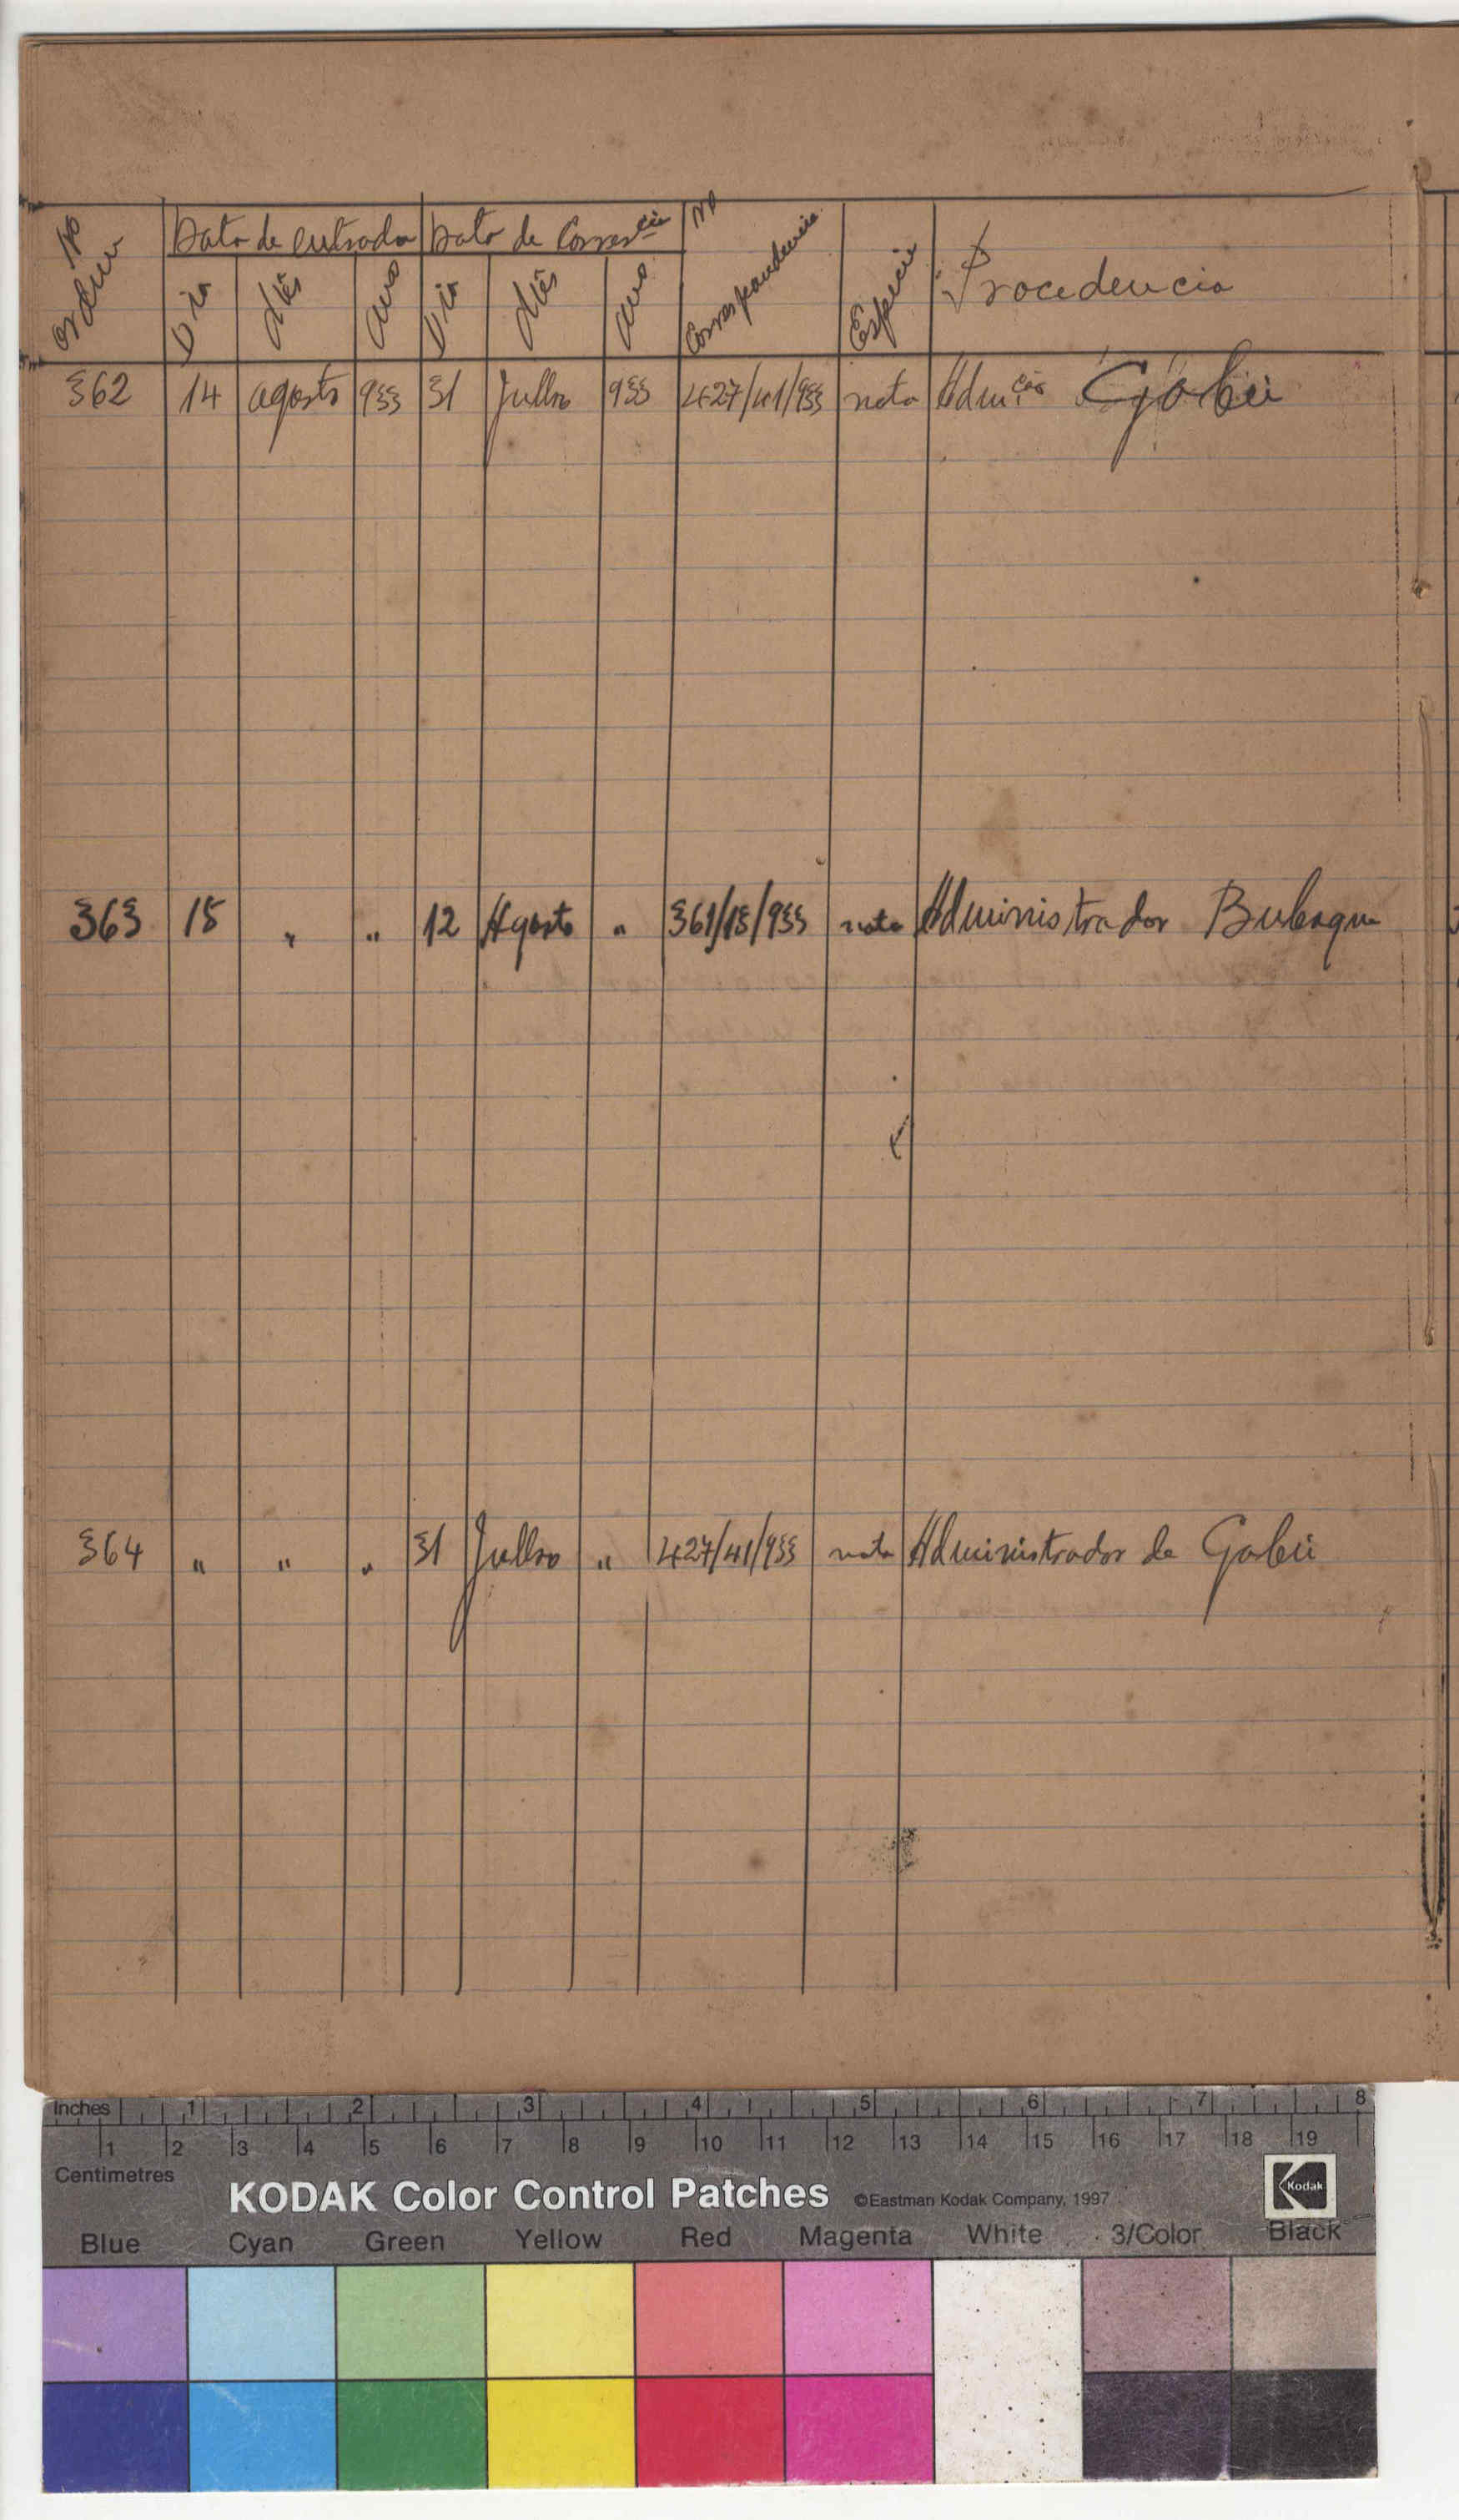 Nº ordem Data de entrada Data de Corres.cia Nº Correspondencia Especie Procedencia
Dia Mês Ano Dia Mês Ano
362 14 agosto 933 31 Julho 933 427/41/933 nota Adm.ção Gabú
363 15 " " 12 Agosto " 361/13/933 nota Administrador Bubaque
364 " " " 31 Julho " 427/41/933 nota Administrador de Gabú
Inches 1 2 3 4 5 6 7 8
1 2 3 4 5 6 7 8 9 10 11 12 13 14 15 16 17 18 19
Centimetres
KODAK Color Control Patches ©Eastman Kodak Company, 1997 Kodak
Blue Cyan Green Yellow Red Magenta White 3/Color Black